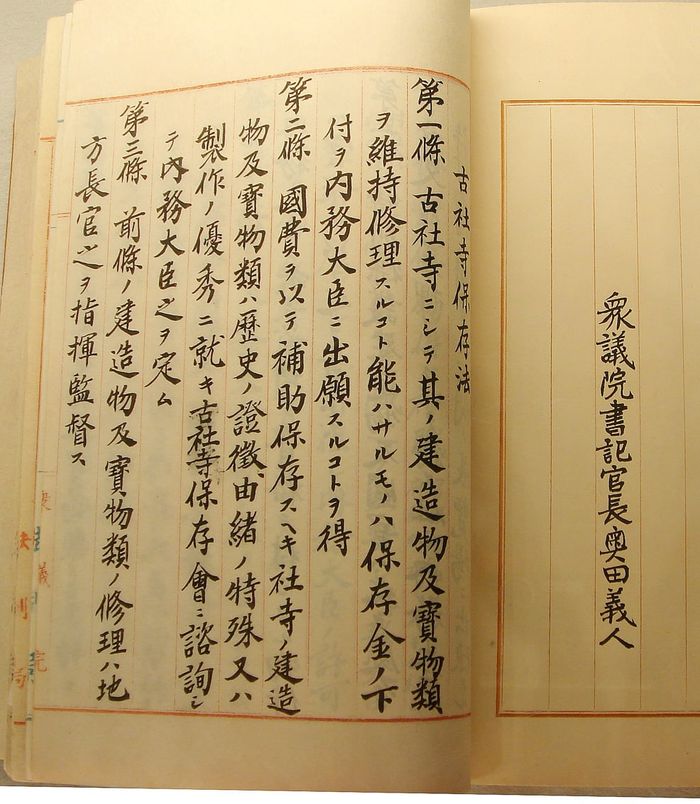 衆議院書記官長奥田義人
古社寺保存法
第一條 古社寺ニシテ其ノ建造物及寳物類
ヲ維持修理スルコト能ハサルモノハ保存金ノ下
付ヲ内務大臣ニ出願スルコトヲ得
第二條 國費ヲ以テ補助保存スヘキ社寺ノ建造
物及寳物類ハ歴史ノ證徴、由緒ノ特殊又ハ
製作ノ優秀ニ就キ古社寺保存會ニ諮詢シ
テ内務大臣之ヲ定ム
第三條 前條ノ建造物及寳物類ノ修理ハ地
方長官之ヲ指揮監督ス